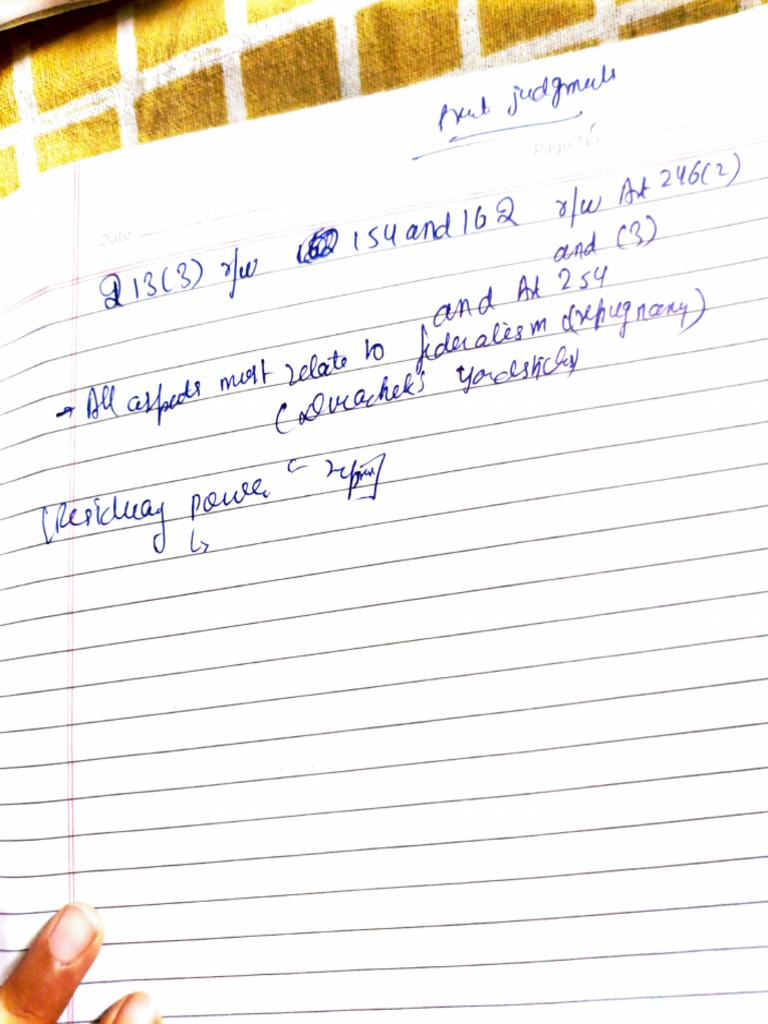 judgments
Page No
Date
213(3) r/w 154 and 162 r/w Art 246(2)
and (3)
and Art 254
→ All aspects must relate to federalism (repugnancy)
( yardsticks)
[Residuary power -